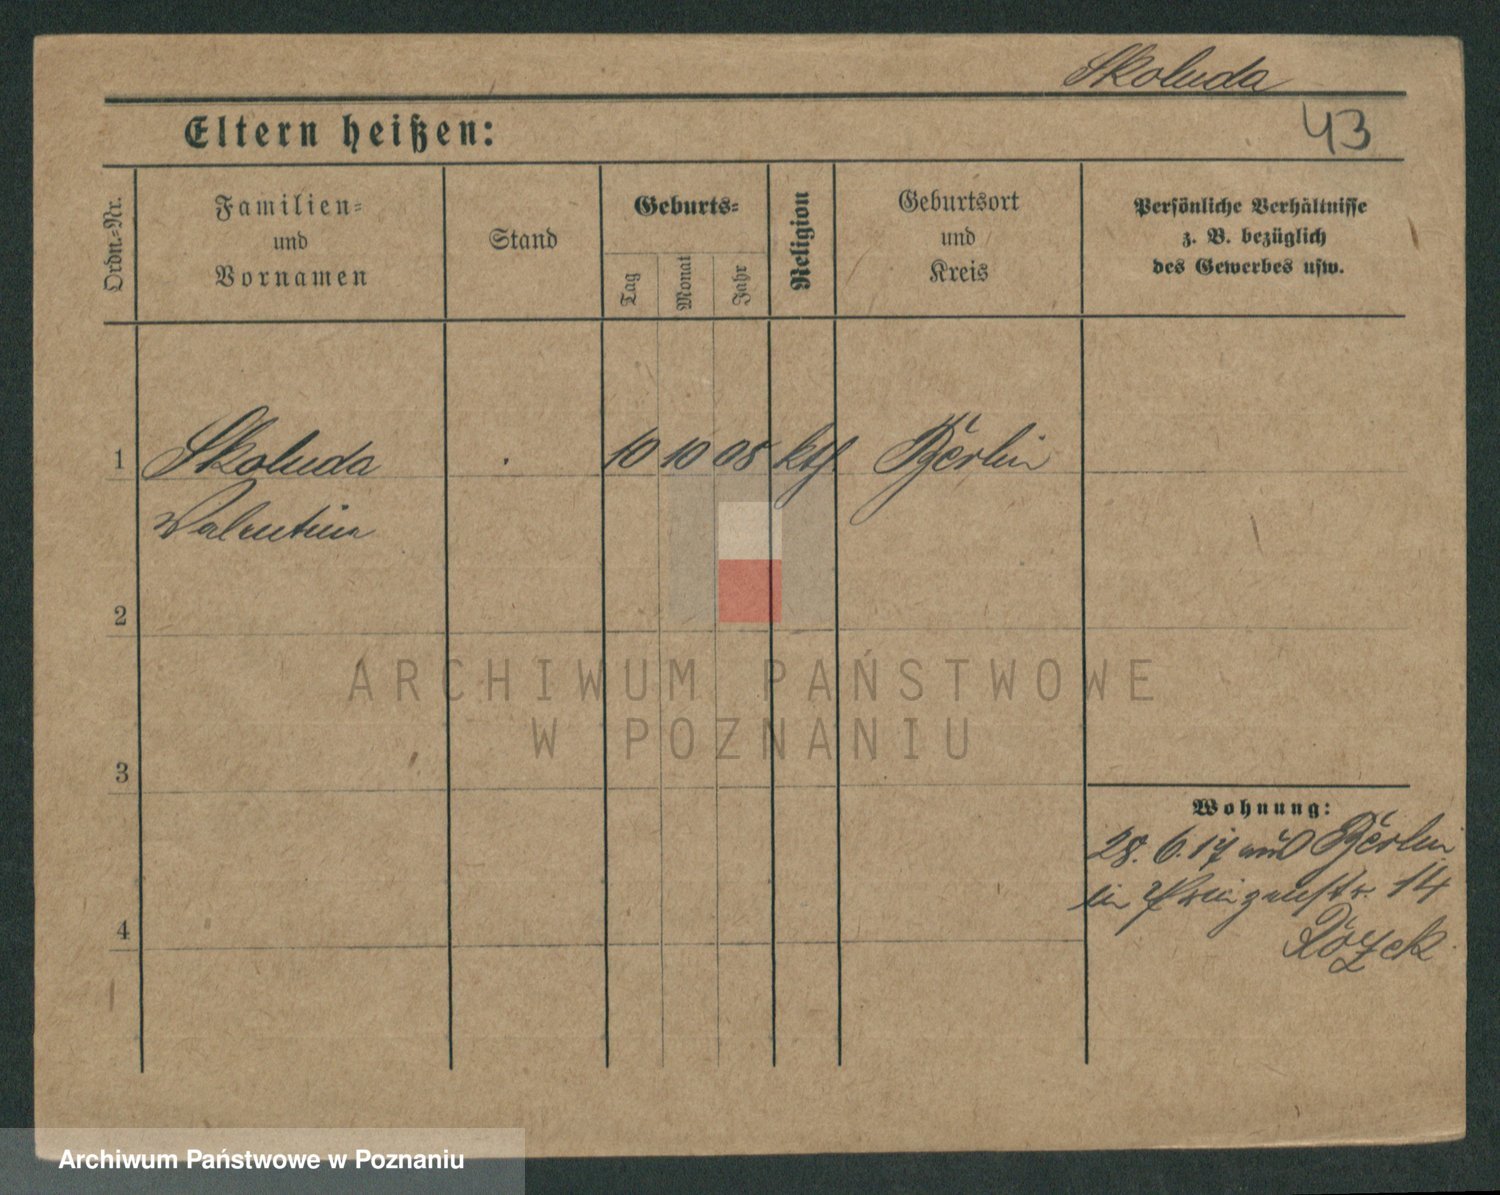 Skoluda
Eltern heißen:
43
Ordn.=Nr.
Familien=
und
Vornamen
Stand
Geburts=
Tag
Monat
Jahr
Religion
Geburtsort
und
Kreis
Persönliche Verhältnisse
z. B. bezüglich
des Gewerbes usw.
1
Skoluda
10 10 08 kth
Berlin
Valentin
2
ARCHIWUM PAŃSTWOWE
W POZNANIU
3
Wohnung:
28. 6. 17 aus Berlin
in Prinzenstr. 14
4
Archiwum Państwowe w Poznaniu